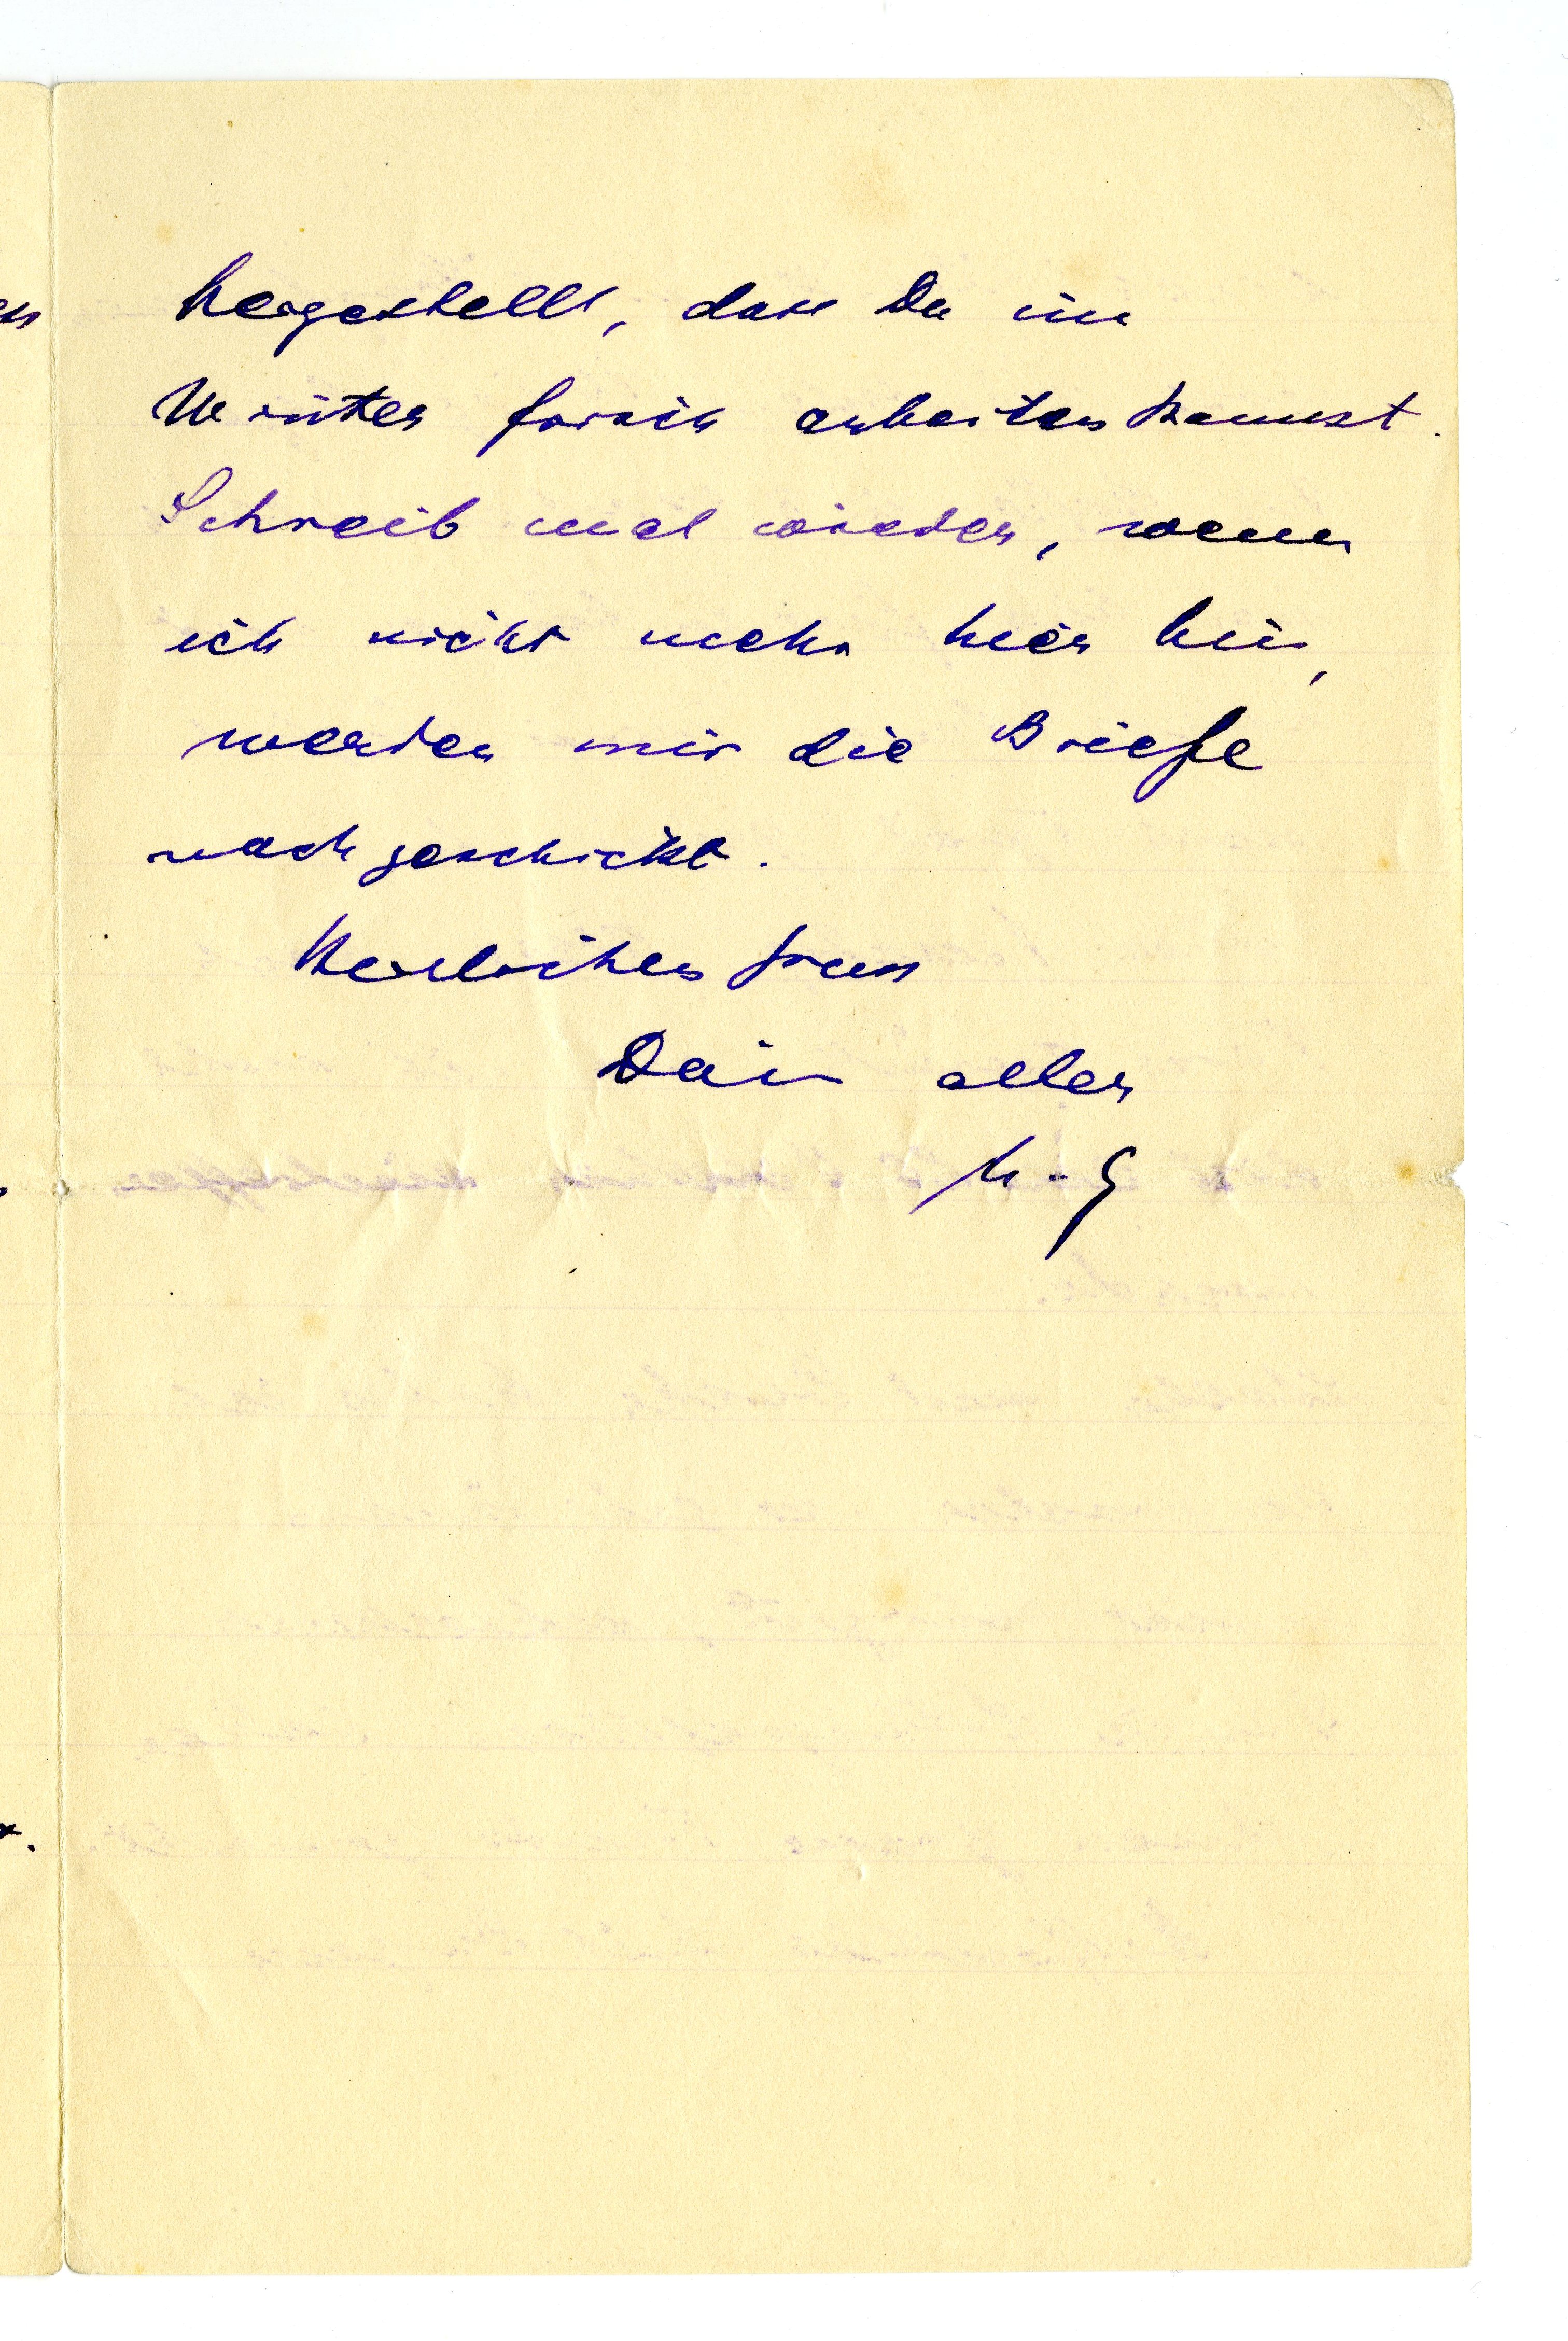 hergestellt, dass Du im
Winter frisch arbeiten kannst.
Schreib mal wieder, wenn
ich nicht mehr hier bin,
werden mir die Briefe
nachgeschickt.
Herzlichen Gruss
Dein alter
H.G